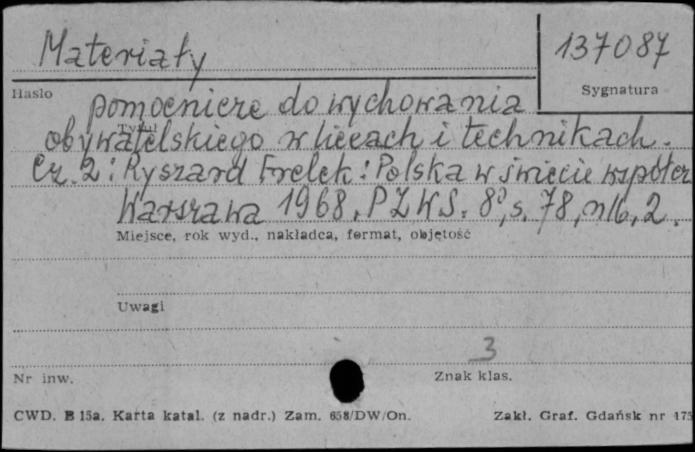 Materiały
137087
Hasło
Sygnatura
pomocnicze do wychowania
Tytuł
obywatelskiego w liceach i technikach.
Cz. 2: Ryszard Frelek: Polska w świecie współcz
Warszawa 1968. PZWS. 8°, s. 78, nlb, 2.
Miejsce, rok wyd., nakładca, format, objętość
Uwagi
3
Nr inw.
Znak klas.
CWD. B 15a. Karta katal. (z nadr.) Zam. 658/DW/On.
Zakł. Graf. Gdańsk nr 175